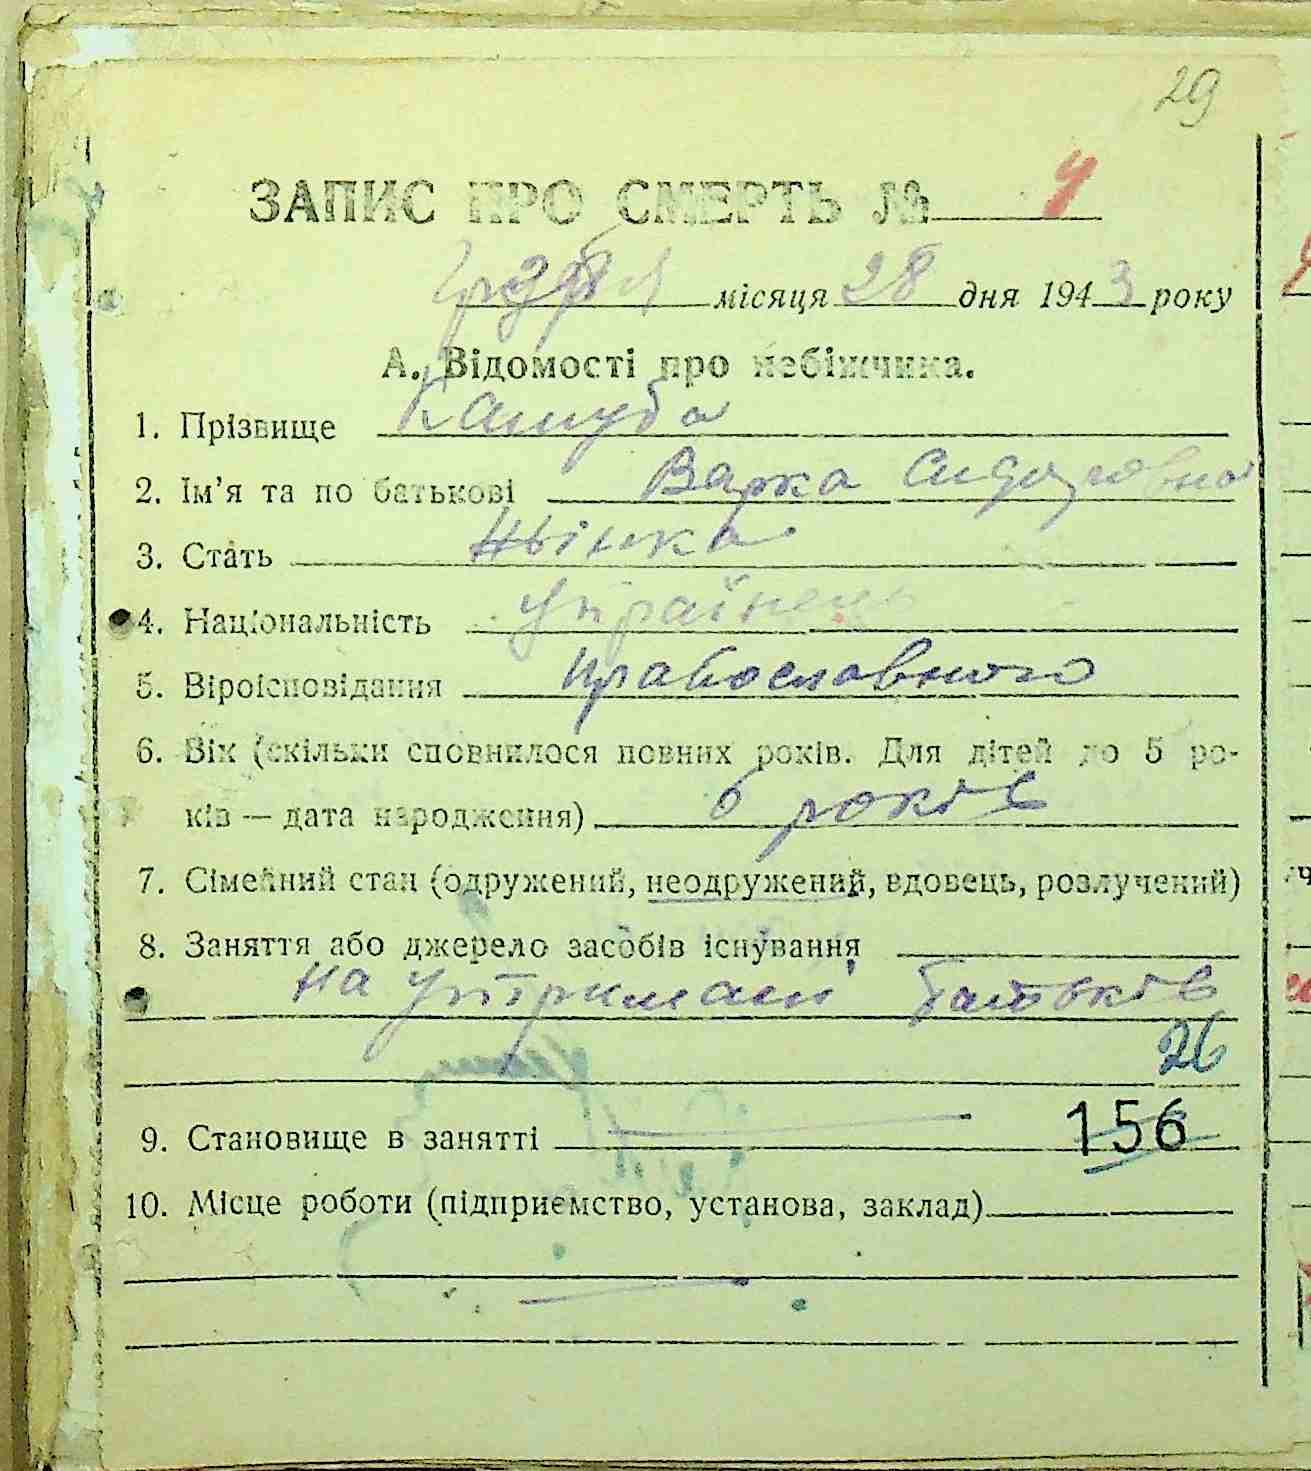 29
ЗАПИС ПРО СМЕРТЬ № 4
місяця 28 дня 1943 року
А. Відомості про небіжчика.
1. Прізвище Кашуба
2. Ім'я та по батькові Варка Сидоровна
3. Стать жінка
4. Національність українець
5. Віроісповідання православного
6. Вік (скільки сповнилося повних років. Для дітей до 5 ро-
ків — дата народження) 6 років
7. Сімейний стан (одружений, неодружений, вдовець, розлучений)
8. Заняття або джерело засобів існування
на утримані батьків
26
9. Становище в занятті 156
10. Місце роботи (підприємство, установа, заклад)